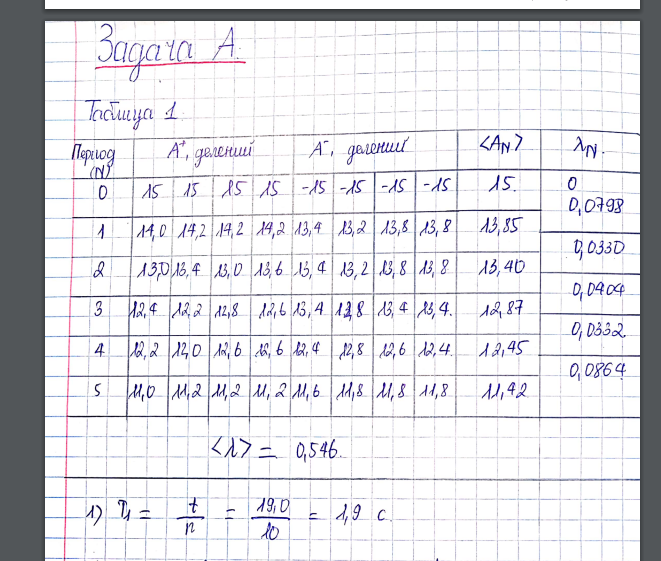 Задача А.
Таблица 1.
Период (N) A⁺, делений A⁻, делений <A_N> λ_N.
0 15 15 15 15 -15 -15 -15 -15 15. 0
0,0798
1 14,0 14,2 14,2 14,2 13,4 13,2 13,8 13,8 13,85
0,0330
2 13,0 13,4 13,0 13,6 13,4 13,2 13,8 13,8 13,40
0,0404
3 12,4 12,2 12,8 12,6 13,4 13,8 13,4 13,4. 12,87
0,0332.
4 12,2 12,0 12,6 12,6 12,4 12,8 12,6 12,4. 12,45
0,0864.
5 11,0 11,2 11,2 11,2 11,6 11,8 11,8 11,8 11,42
<λ> = 0,546.
1) T₁ = t/n = 19,0/10 = 1,9 с.